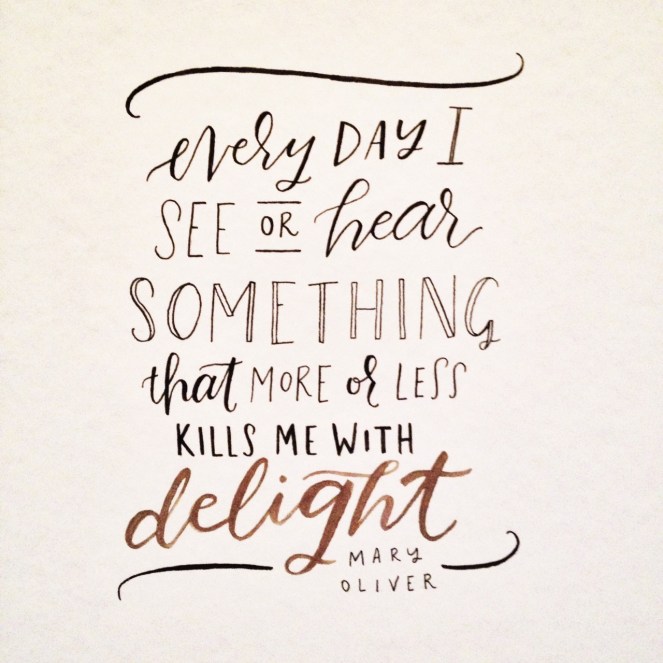 every DAY I
SEE OR hear
SOMETHING
that MORE or LESS
KILLS ME WITH
delight
MARY
OLIVER